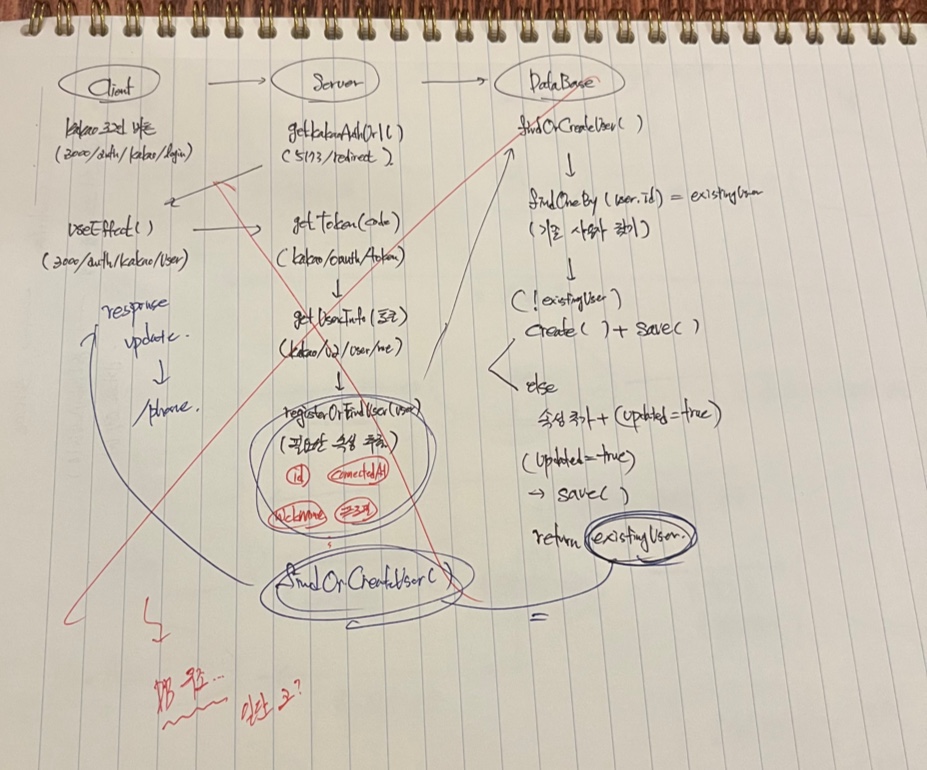 Client
Server
DataBase
kakao 로그인 버튼
(3000/auth/kakao/login)
useEffect()
(3000/auth/kakao/user)
response
update.
/phone.
getkakaoAuthUrl()
(5173/redirect).
getToken(code)
(kakao/oauth/token)
getUserInfo(토큰)
(kakao/v2/user/me)
registerOrFindUser(user)
(필요한 속성 추출)
id connectedAt
nickname 프로필
findOrCreateUser()
findOrCreateUser()
findOneBy(user.id) = existingUser
(기존 사용자 찾기)
(!existingUser)
create() + save()
else
속성 추가 + (updated=true)
(updated=true)
→ save()
return existingUser.
=
DB 구조...
일단 ?